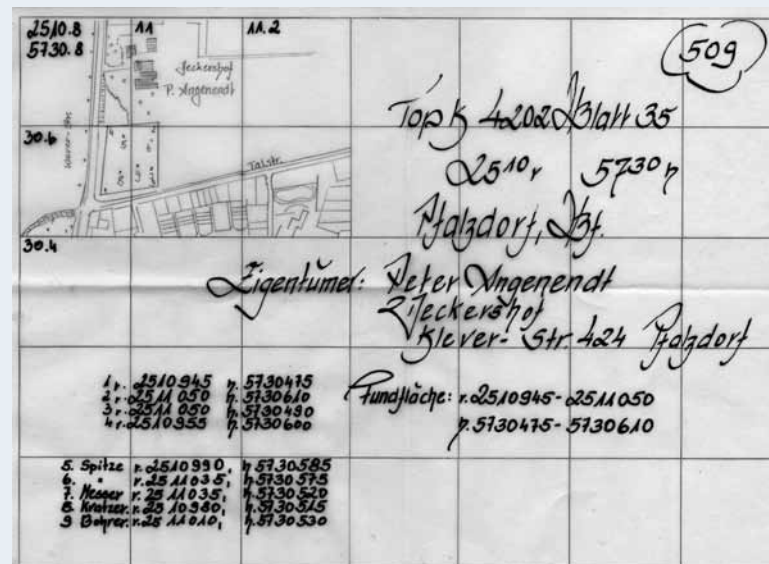 2510.8 11 11.2
5730.8
509
Jeckershof
P. Angenendt
Top K 4202 Blatt 35
30.6
Talstr.
25¹⁰ r 57³⁰ h
Pfalzdorf, Bf.
30.4
Eigentümer: Peter Angenendt
Jeckershof
Klever- Str. 424 Pfalzdorf
1 r. 2510945 h. 5730475
2 r. 2511050 h. 5730610
3 r. 2511050 h. 5730490
4 r. 2510955 h. 5730600
Fundfläche: r. 2510945- 2511050
h. 5730475- 5730610
5. Spitze r. 2510990, h 5730585
6. " r. 2511035, h 5730575
7. Messer r. 2511035, h. 5730520
8 Kratzer. r. 2510980, h. 5730515
9 Bohrer. r. 2511010, h. 5730530